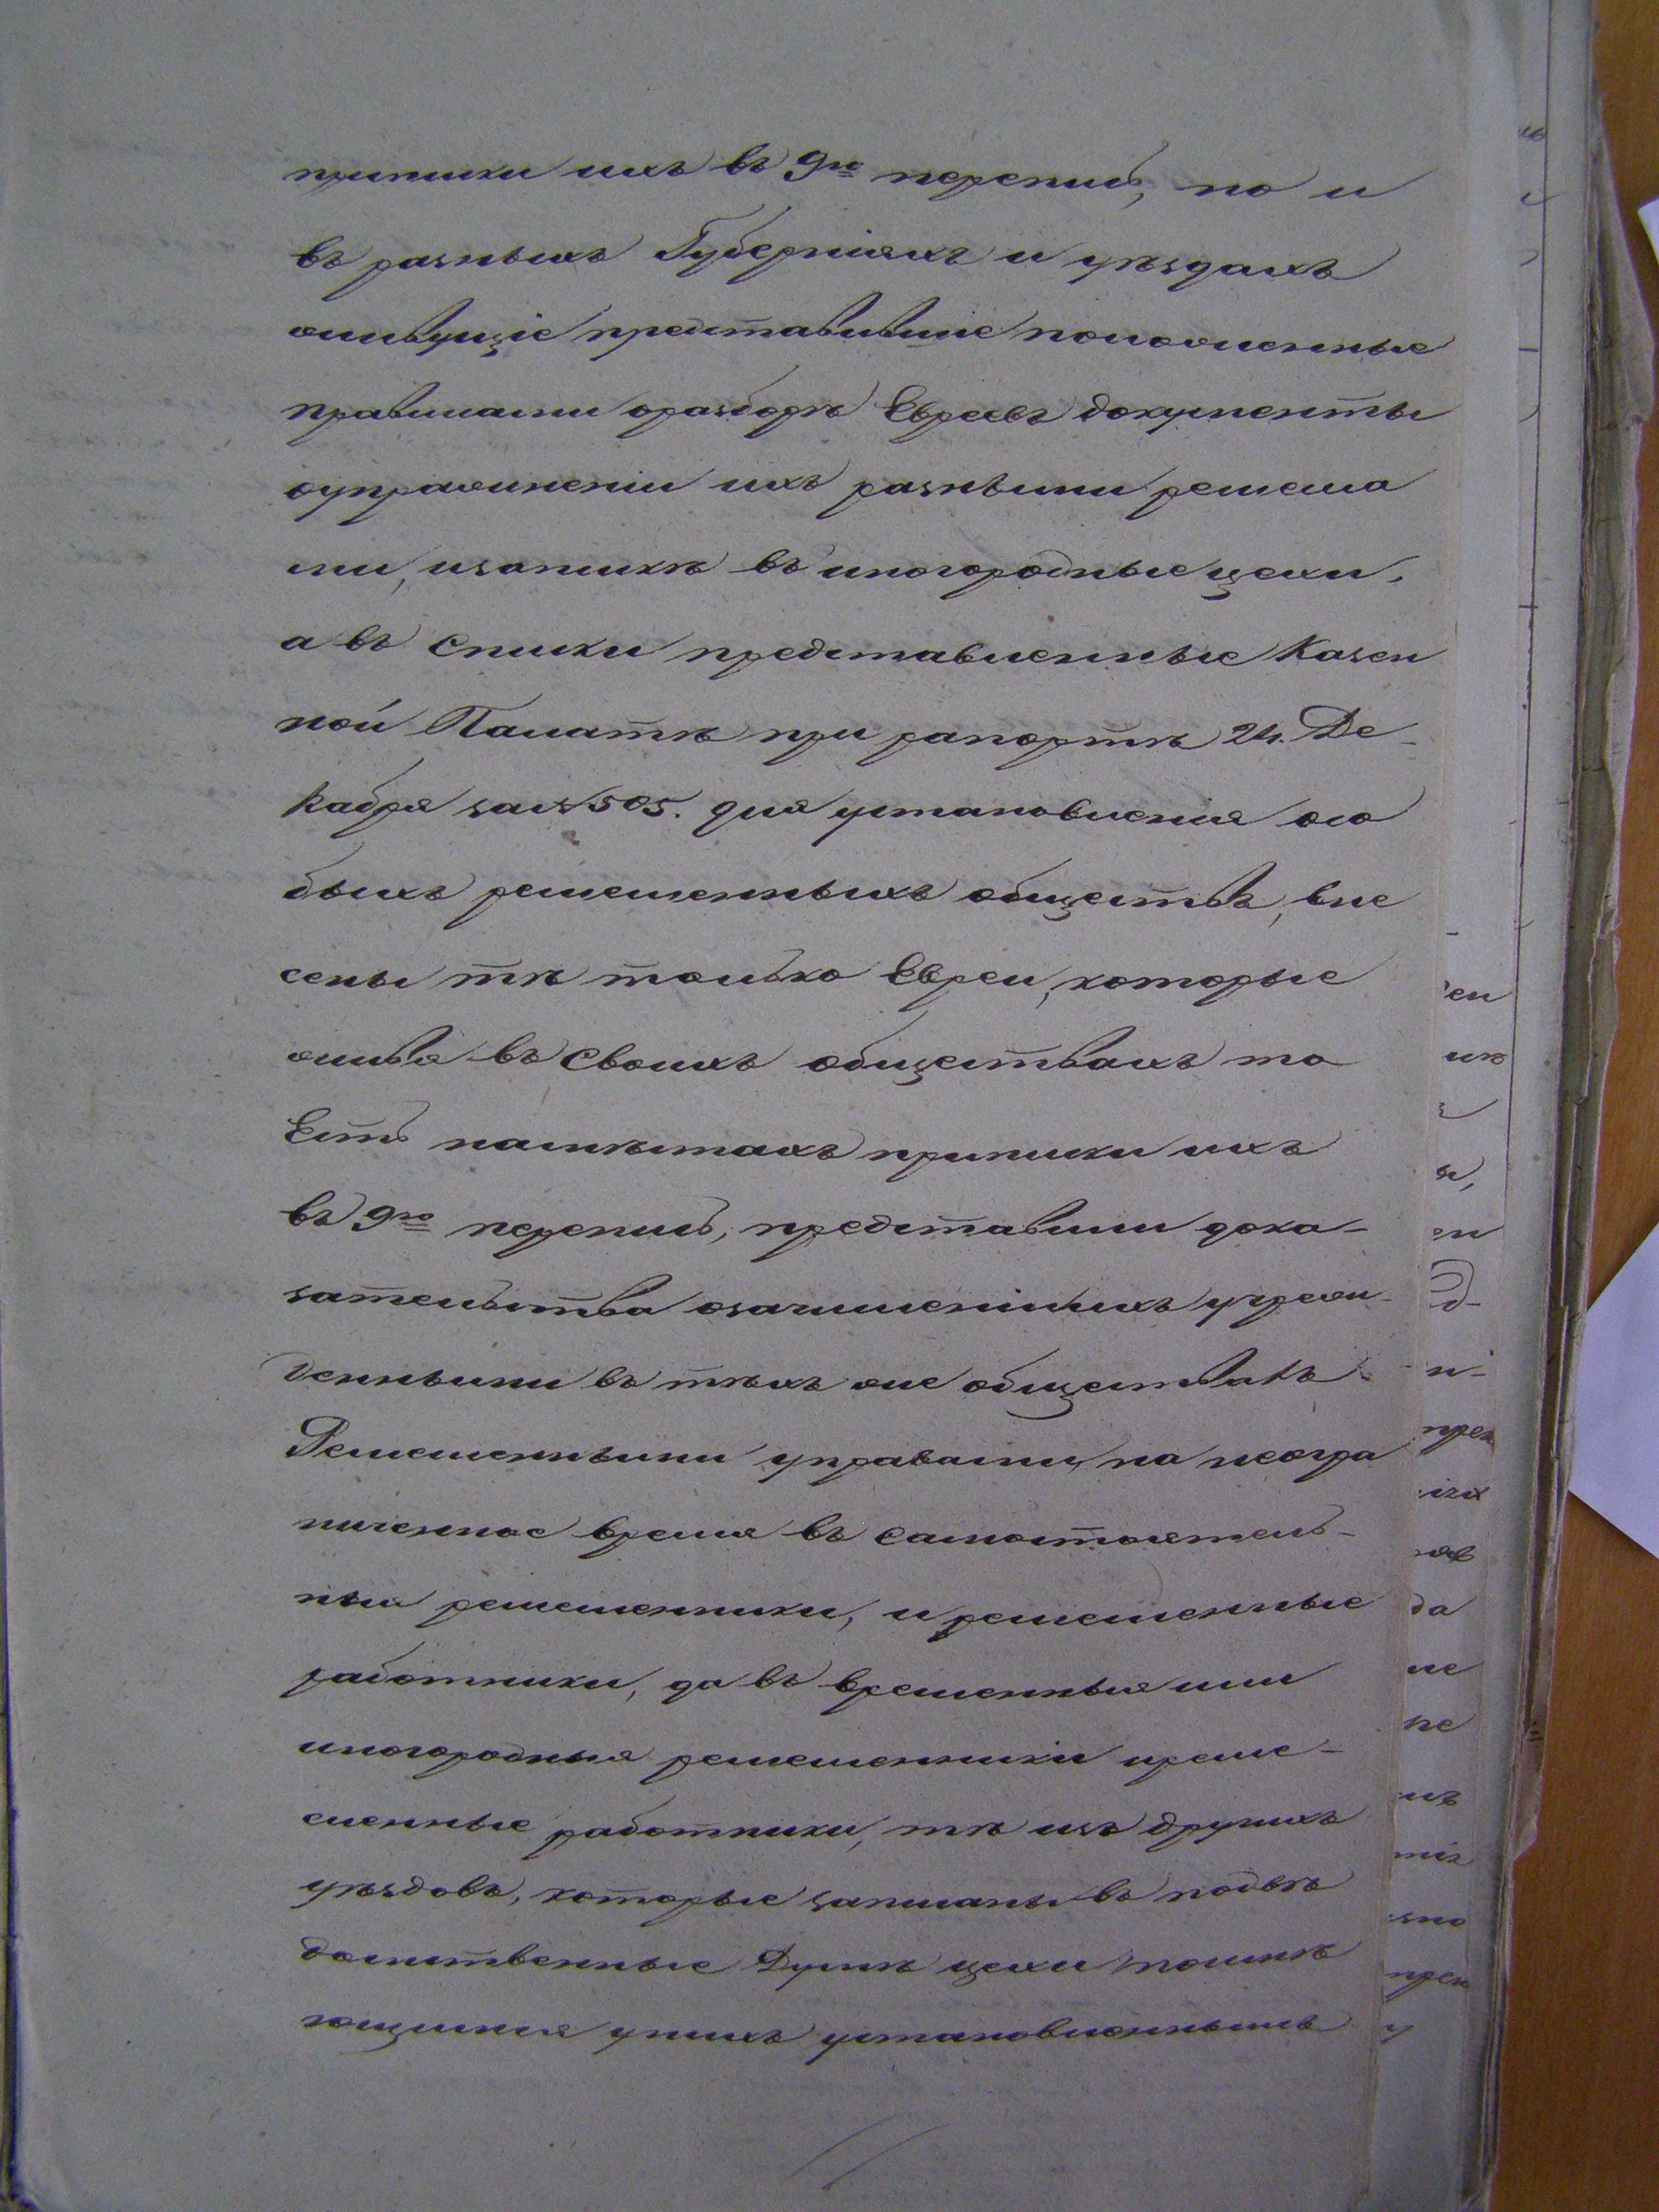 приписки ихъ въ 9ю перепись, но и
въ разныхъ Губерніяхъ и уѣздахъ
живущіе представившіе положенные
правилами оразборѣ Евреевъ документы
оупражненіи ихъ разными ремесла
ми, изапискѣ въ иногородные цехи,
а въ списки представленные Казен
ной Палатѣ при рапортѣ 24. Де-
кабря за№505. для установленія осо
быхъ ремесленныхъ обществъ, вне
сены тѣ только Евреи, которые
живя въ своихъ обществахъ то
Есть намѣстахъ приписки ихъ
въ 9ю перепись, представили дока-
зательства озачисленіиихъ учреж-
денными въ тѣхъ же обществахъ
Ремесленными управами, на неогра
ниченное время въ самостоятель-
ныя ремесленники, и ремесленные
работники, да въ временныя или
иногородныя ремесленники иреме-
сленные работники, тѣ изъ другихъ
уѣздовъ, которые записаны въ подвѣ
домственные Думѣ цехи поимѣ
ющимся унихъ установленнымъ